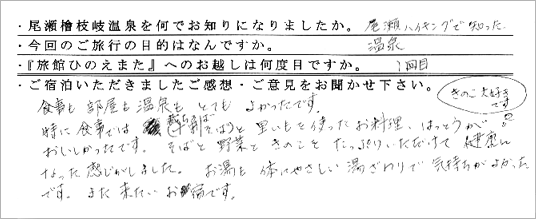 ・尾瀬檜枝岐温泉を何でお知りになりましたか。 尾瀬ハイキングで知った。
・今回のご旅行の目的はなんですか。 温泉
・『旅館ひのえまた』へのお越しは何度目ですか。 1回目
・ご宿泊いただきましたご感想・ご意見をお聞かせ下さい。
きのこ大好きです
食事も部屋も温泉もとてもよかったです。
特に食事では そばと里いもを使ったお料理、はっとうが
おいしかったです。そばと野菜ときのことたっぷりいただけて健康に
なった感じがしました。お湯も体にやさしい湯ざわりで気持ちがよかった
です。また来たいお宿です。